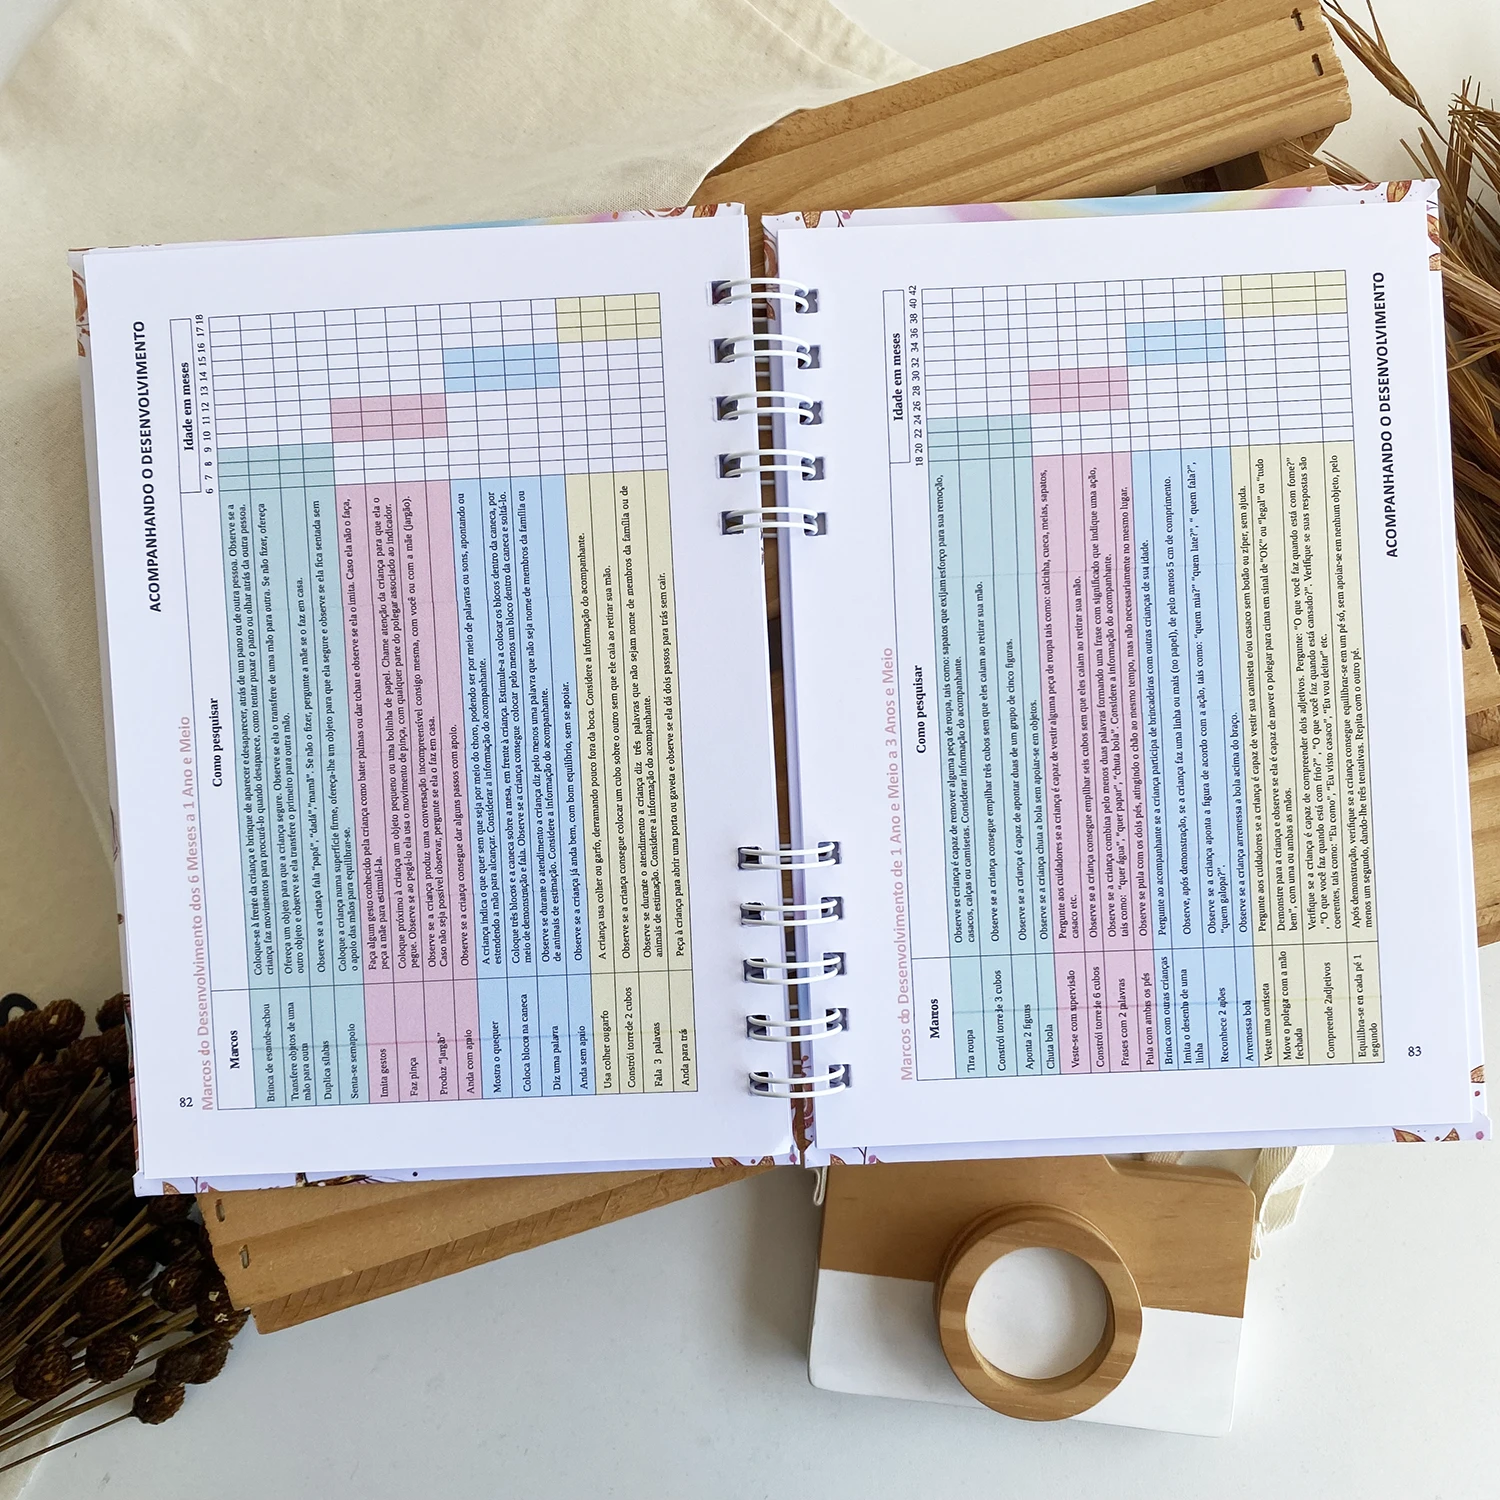 ACOMPANHANDO O DESENVOLVIMENTO
82
Marcos do Desenvolvimento dos 6 Meses a 1 Ano e Meio
Marcos
Como pesquisar
Idade em meses
6 7 8 9 10 11 12 13 14 15 16 17 18
Brinca de esconde-achou
Coloque-se à frente da criança e brinque de aparecer e desaparecer, atrás de um pano ou de outra pessoa. Observe se a
criança faz movimentos para procurá-lo quando desaparece, como tentar puxar o pano ou olhar atrás da outra pessoa.
Transfere objetos de uma
mão para outra
Ofereça um objeto para que a criança segure. Observe se ela o transfere de uma mão para outra. Se não fizer, ofereça
outro objeto e observe se ela transfere o primeiro para outra mão.
Duplica sílabas
Observe se a criança fala “papá”, “dadá” “mamã”. Se não o fizer, pergunte a mãe se o faz em casa.
Senta-se sem apoio
Coloque a criança numa superfície firme, ofereça-lhe um objeto para que ela segure e observe se ela fica sentada sem
o apoio das mãos para equilibrar-se.
Imita gestos
Faça algum gesto conhecido pela criança como bater palmas ou dar tchau e observe se ela o imita. Caso ela não o faça,
peça a mãe para estimulá-la.
Faz pinça
Coloque próximo à criança um objeto pequeno ou uma bolinha de papel. Chame atenção da criança para que ela o
pegue. Observe se ao pegá-lo ela usa o movimento de pinça, com qualquer parte do polegar associado ao indicador.
Produz “jargão”
Observe se a criança produz uma conversação incompreensível consigo mesma, com você ou com a mãe (jargão).
Caso não seja possível observar, pergunte se ela o faz em casa.
Anda com apoio
Observe se a criança consegue dar alguns passos com apoio.
Mostra o que quer
A criança indica o que quer sem que seja por meio do choro, podendo ser por meio de palavras ou sons, apontando ou
estendendo a mão para alcançar. Considerar a informação do acompanhante.
Coloca blocos na caneca
Coloque três blocos e a caneca sobre a mesa, em frente à criança. Estimule-a a colocar os blocos dentro da caneca, por
meio de demonstração e fala. Observe se a criança consegue colocar pelo menos um bloco dentro da caneca e soltá-lo.
Diz uma palavra
Observe se durante o atendimento a criança diz pelo menos uma palavra que não seja nome de membros da família ou
de animais de estimação. Considere a informação do acompanhante.
Anda sem apoio
Observe se a criança já anda bem, com bom equilíbrio, sem se apoiar.
Usa colher ou garfo
A criança usa colher ou garfo, derramando pouco fora da boca. Considere a informação do acompanhante.
Constrói torre de 2 cubos
Observe se a criança consegue colocar um cubo sobre o outro sem que ele caia ao retirar sua mão.
Fala 3 palavras
Observe se durante o atendimento a criança diz três palavras que não sejam nome de membros da família ou de
animais de estimação. Considere a informação do acompanhante.
Anda para trás
Peça à criança para abrir uma porta ou gaveta e observe se ela dá dois passos para trás sem cair.
Marcos do Desenvolvimento de 1 Ano e Meio a 3 Anos e Meio
Marcos
Como pesquisar
Idade em meses
18 20 22 24 26 28 30 32 34 36 38 40 42
Tira roupa
Observe se criança é capaz de remover alguma peça de roupa, tais como: sapatos que exijam esforço para sua remoção,
casacos, calças ou camisetas. Considerar informação do acompanhante.
Constrói torre de 3 cubos
Observe se a criança consegue empilhar três cubos sem que eles caiam ao retirar sua mão.
Aponta 2 figuras
Observe se a criança é capaz de apontar duas de um grupo de cinco figuras.
Chuta bola
Observe se a criança chuta a bola sem apoiar-se em objetos.
Veste-se com supervisão
Pergunte aos cuidadores se a criança é capaz de vestir alguma peça de roupa tais como: calcinha, cueca, meias, sapatos,
casaco etc.
Constrói torre de 6 cubos
Observe se a criança consegue empilhar seis cubos sem que eles caiam ao retirar sua mão.
Frases com 2 palavras
Observe se a criança combina pelo menos duas palavras formando uma frase com significado que indique uma ação,
tais como: “quer água”, “quer papar”, “chuta bola”. Considere a informação do acompanhante.
Pula com ambos os pés
Observe se pula com os dois pés, atingindo o chão ao mesmo tempo, mas não necessariamente no mesmo lugar.
Brinca com outras crianças
Pergunte ao acompanhante se a criança participa de brincadeiras com outras crianças de sua idade.
Imita o desenho de uma
linha
Observe, após demonstração, se a criança faz uma linha ou mais (no papel), de pelo menos 5 cm de comprimento.
Reconhece 2 ações
Observe se a criança aponta a figura de acordo com a ação, tais como: “quem mia?” “quem late?”, “ quem fala?”,
“quem galopa?”.
Arremessa bola
Observe se a criança arremessa a bola acima do braço.
Veste uma camiseta
Pergunte aos cuidadores se a criança é capaz de vestir sua camiseta e/ou casaco sem botão ou zíper, sem ajuda.
Move o polegar com a mão
fechada
Demonstre para a criança e observe se ela é capaz de mover o polegar para cima em sinal de “OK” ou “legal” ou “tudo
bem”, com uma ou ambas as mãos.
Compreende 2 adjetivos
Verifique se a criança é capaz de compreender dois adjetivos. Pergunte: “O que você faz quando está com fome?”
, “O que você faz quando está com frio?”, “O que você faz quando está cansado?”. Verifique se suas respostas são
coerentes, tais como: “Eu como”, “Eu visto casaco”, “Eu vou deitar” etc.
Equilibra-se em cada pé 1
segundo
Após demonstração, verifique se a criança consegue equilibrar-se em um pé só, sem apoiar-se em nenhum objeto, pelo
menos um segundo, dando-lhe três tentativas. Repita com o outro pé.
83
ACOMPANHANDO O DESENVOLVIMENTO